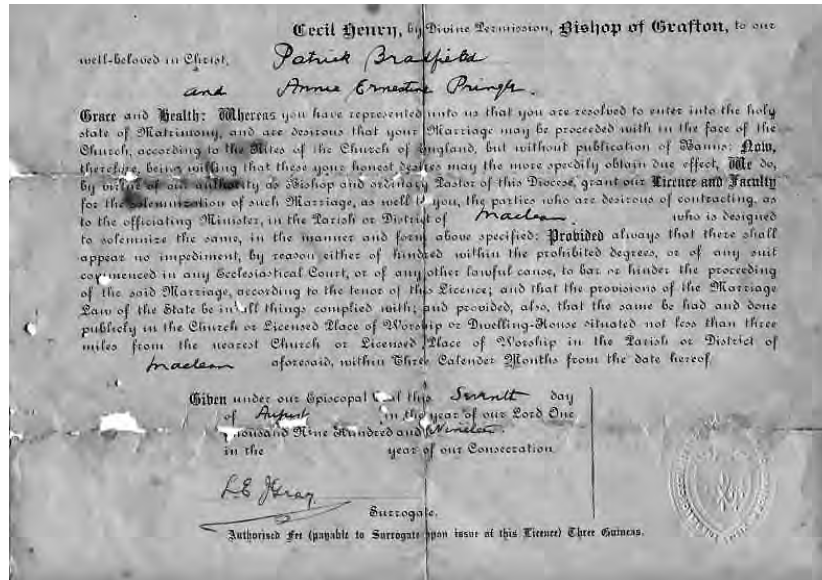 Cecil Henry, by Divine Permission, Bishop of Grafton, to our
well-beloved in Christ, Patrick Bradfield
and Annie Ernestine Pringle.
Grace and Health: Whereas you have represented unto us that you are resolved to enter into the holy
state of Matrimony, and are desirous that your Marriage may be proceeded with in the face of the
Church, according to the Rites of the Church of England, but without publication of Banns: Now,
therefore, being willing that these your honest desires may the more speedily obtain due effect, We do,
by virtue of our authority as Bishop and ordinary Pastor of this Diocese, grant our Licence and Faculty
for the solemnization of such Marriage, as well to you, the parties who are desirous of contracting, as
to the officiating Minister, in the Parish or District of Maclean who is designed
to solemnize the same, in the manner and form above specified: Provided always that there shall
appear no impediment, by reason either of kindred within the prohibited degrees, or of any suit
commenced in any Ecclesiastical Court, or of any other lawful cause, to bar or hinder the proceeding
of the said Marriage, according to the tenor of this Licence; and that the provisions of the Marriage
Law of the State be in all things complied with; and provided, also, that the same be had and done
publicly in the Church or Licensed Place of Worship or Dwelling-House situated not less than three
miles from the nearest Church or Licensed Place of Worship in the Parish or District of
Maclean aforesaid, within Three Calender Months from the date hereof.
Given under our Episcopal Seal this Seventh day
of August in the year of our Lord One
Thousand Nine Hundred and Nineteen
in the year of our Consecration
Surrogate.
Authorised Fee (payable to Surrogate upon issue of this Licence) Three Guineas.